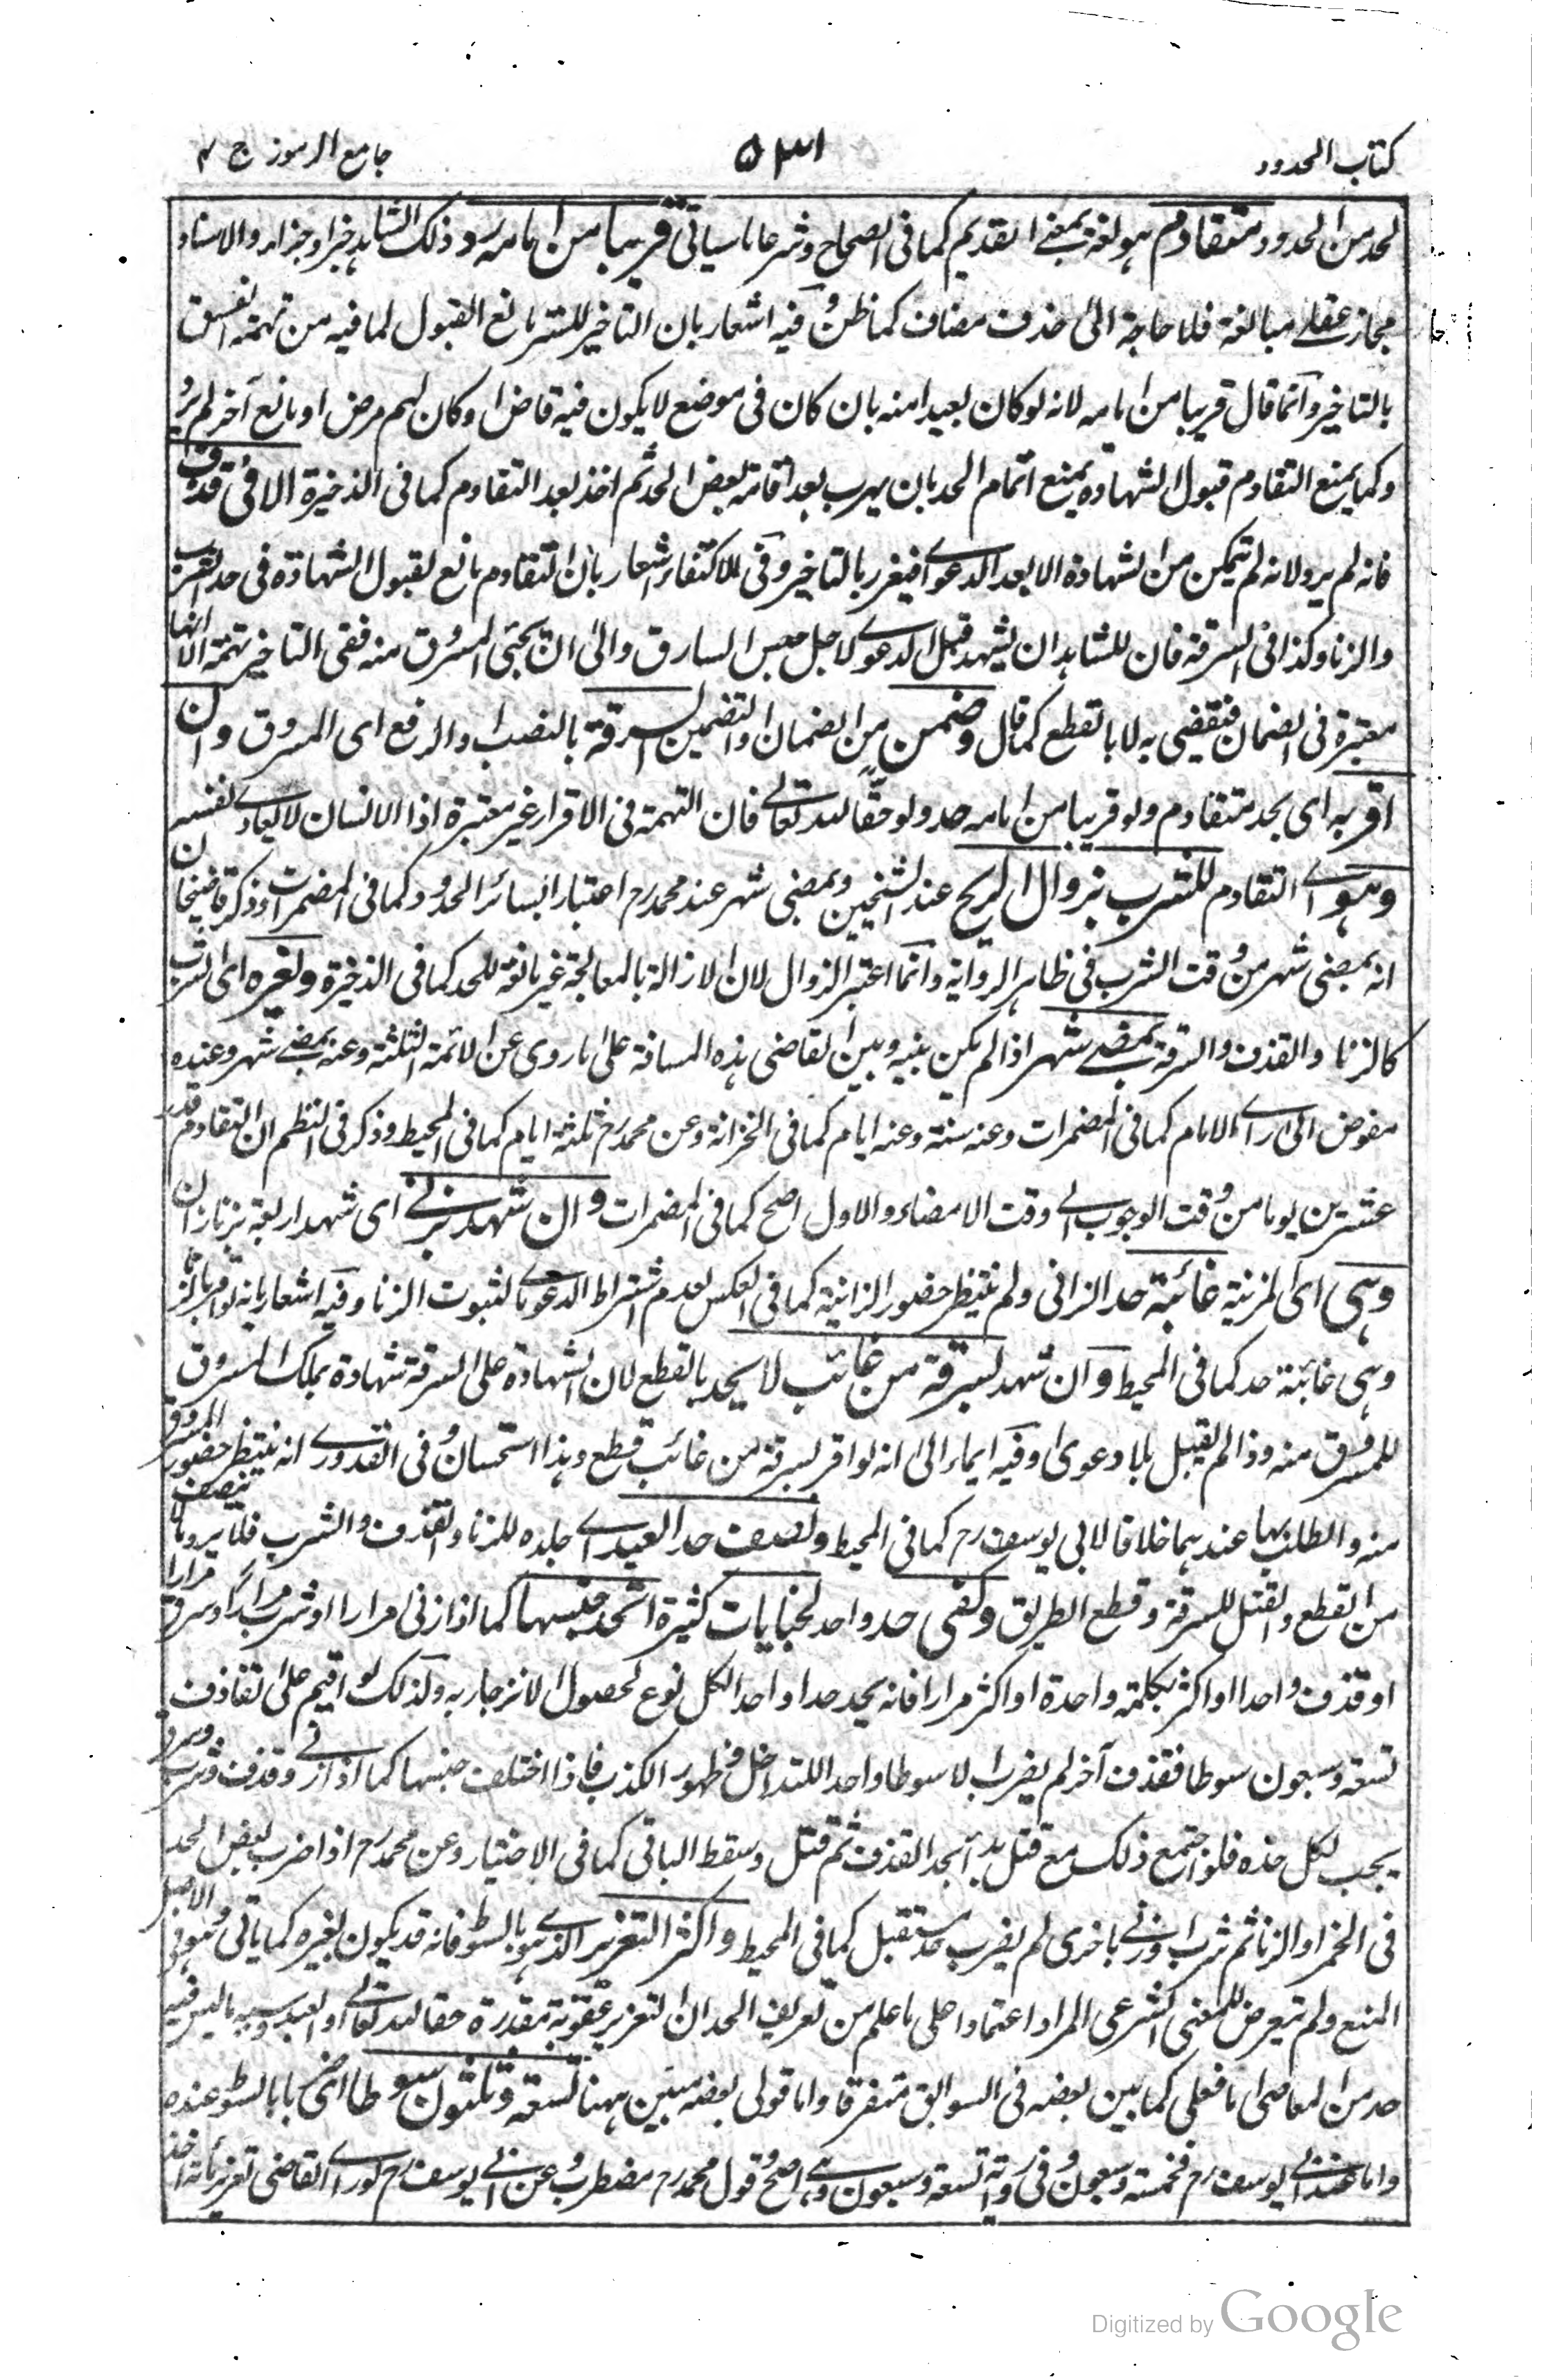 كتاب الحدود
۵۳۱
جامع الرموز ج ۴
لحد من الحدود متقادم هو لغة بمعنى القديم كما فى الصحاح وشرعا ما سياتى قريبا من امامه رد ذلك الشاهد خبرا وجزاء والاسناد
مجاز عقلى مبالغة فلا حاجة الى حذف مضاف كما ظن وفيه اشعار بان التاخير للستر مانع القبول لما فيه من تهمة الفسق
بالتاخير وانما قال قريبا من امامه لانه لو كان بعيدا منه بان كان فى موضع لا يكون فيه قاض او كان لهم مرض او مانع آخر لم يرد
وكما يمنع التقادم قبول الشهادة يمنع اتمام الحد بان يهرب بعد اقامة بعض الحد ثم اخذ بعد التقادم كما فى الذخيرة الا فى قذف
فانه لم يرد لانه لم يتمكن من الشهادة الا بعد الدعوى فيغرر بالتاخير وفى الاكتفاء اشعار بان التقادم مانع لقبول الشهادة فى حد الشرب
والزنا وكذا فى السرقة فان للشاهد ان يشهد قبل الدعوى لاجل حبس السارق والى ان يجئ المسروق منه ففى التاخير تهمة الا انها
معتبرة فى الضمان فيقضى به لا بالقطع كما قال وضمن من الضمان او التضمين السرقة بالنصب والرفع اى المسروق وان
اقر به اى بحد متقادم ولو قريبا من امامه حد ولو حقا لله تعالى فان التهمة فى الاقرار غير معتبرة اذ الانسان لا يعادى نفسه
وهو اى التقادم للشرب بزوال الريح عند الشيخين وبمضى شهر عند محمد رح اعتبارا بسائر الحدود كما فى المضمرات وذكر قاضيخان
انه بمضى شهر من وقت الشرب فى ظاهر الرواية وانما اعتبر الزوال لان الازالة بالمعالجة غير مانعة للحد كما فى الذخيرة ولغيره اى الشرب
كالزنا والقذف والسرقة بمضى شهر اذا لم يكن بينه وبين القاضى هذه المسافة على ما روى عن الائمة الثلثة وعنه بمضى شهر وعنده
مفوض الى راى الامام كما فى المضمرات وعنه سنة وعنه ايام كما فى الخزانة وعن محمد رح ثلثة ايام كما فى المحيط وذكر فى النظم ان التقادم قدر
عشرين يوما من وقت الوجوب الى وقت الامضاء والاول اصح كما فى المضمرات وان شهد بزنى اى شهد اربعة بزنا زان
وهى اى المزنية غائبة حد الزانى ولم ينتظر حضور الزانية كما فى العكس لعدم اشتراط الدعوى لثبوت الزنا وفيه اشعار بانه لو اقر بالزنا
وهى غائبة حد كما فى المحيط وان شهد لسرقة من غائب لا يحد بالقطع لان الشهادة على السرقة شهادة بملك المسروق
للمسروق منه وذا لم يقبل بلا دعوى وفيه ايماء الى انه لو اقر بسرقة من غائب قطع وهذا استحسان وفى القدورى انه ينتظر حضور المسروق
منه والطلب بها عندهما خلافا لابى يوسف رح كما فى المحيط ونصف حد العبد اى جلده للزنا والقذف والشرب فلا يرد ما لا ينصف
من القطع والقتل للسرقة وقطع الطريق وكفى حد واحد لجنايات كثيرة اتحد جنسها كما اذا زنى مرارا او شرب مرارا او سرق مرارا
او قذف واحدا او اكثر بكلمة واحدة او اكثر مرارا فانه يحد حدا واحدا لكل نوع لحصول الانزجار به ولذلك لو اقيم على القاذف
تسعة وسبعون سوطا فقذف آخر لم يضرب الا سوطا واحدا للتداخل وظهور الكذب فاذا اختلف جنسها كما اذا زنى وقذف وشرب وسرق
يجب لكل حده فلو اجتمع ذلك مع قتل بدأ بحد القذف ثم قتل وسقط الباقى كما فى الاختيار وعن محمد رح اذا ضرب بعض الحد
فى الخمر او الزنا ثم شرب او زنى باخرى لم يضرب حد مستقبل كما فى المحيط واكثر التعزير الذى هو بالسوط فانه قد يكون بغيره كما ياتى وهو فى الاصل
المنع ولم يتعرض للمعنى الشرعى المراد اعتمادا على ما علم من تعريف الحد ان التعزير عقوبة مقدرة حقا لله تعالى او العبد وسببه ما ليس فيه
حد من المعاصى اما فعلى كما بين بعضه فى السوابق متفرقا واما قولى بعضه مبين ههنا تسعة وثلثون سوطا اى ضربا بالسوط عنده
واما عند ابى يوسف رح فخمسة وسبعون وفى رواية تسعة وسبعون وهى اصح وقول محمد رح مضطرب وعن ابى يوسف رح لو راى القاضى تعزير مائة اخذ
Digitized by Google